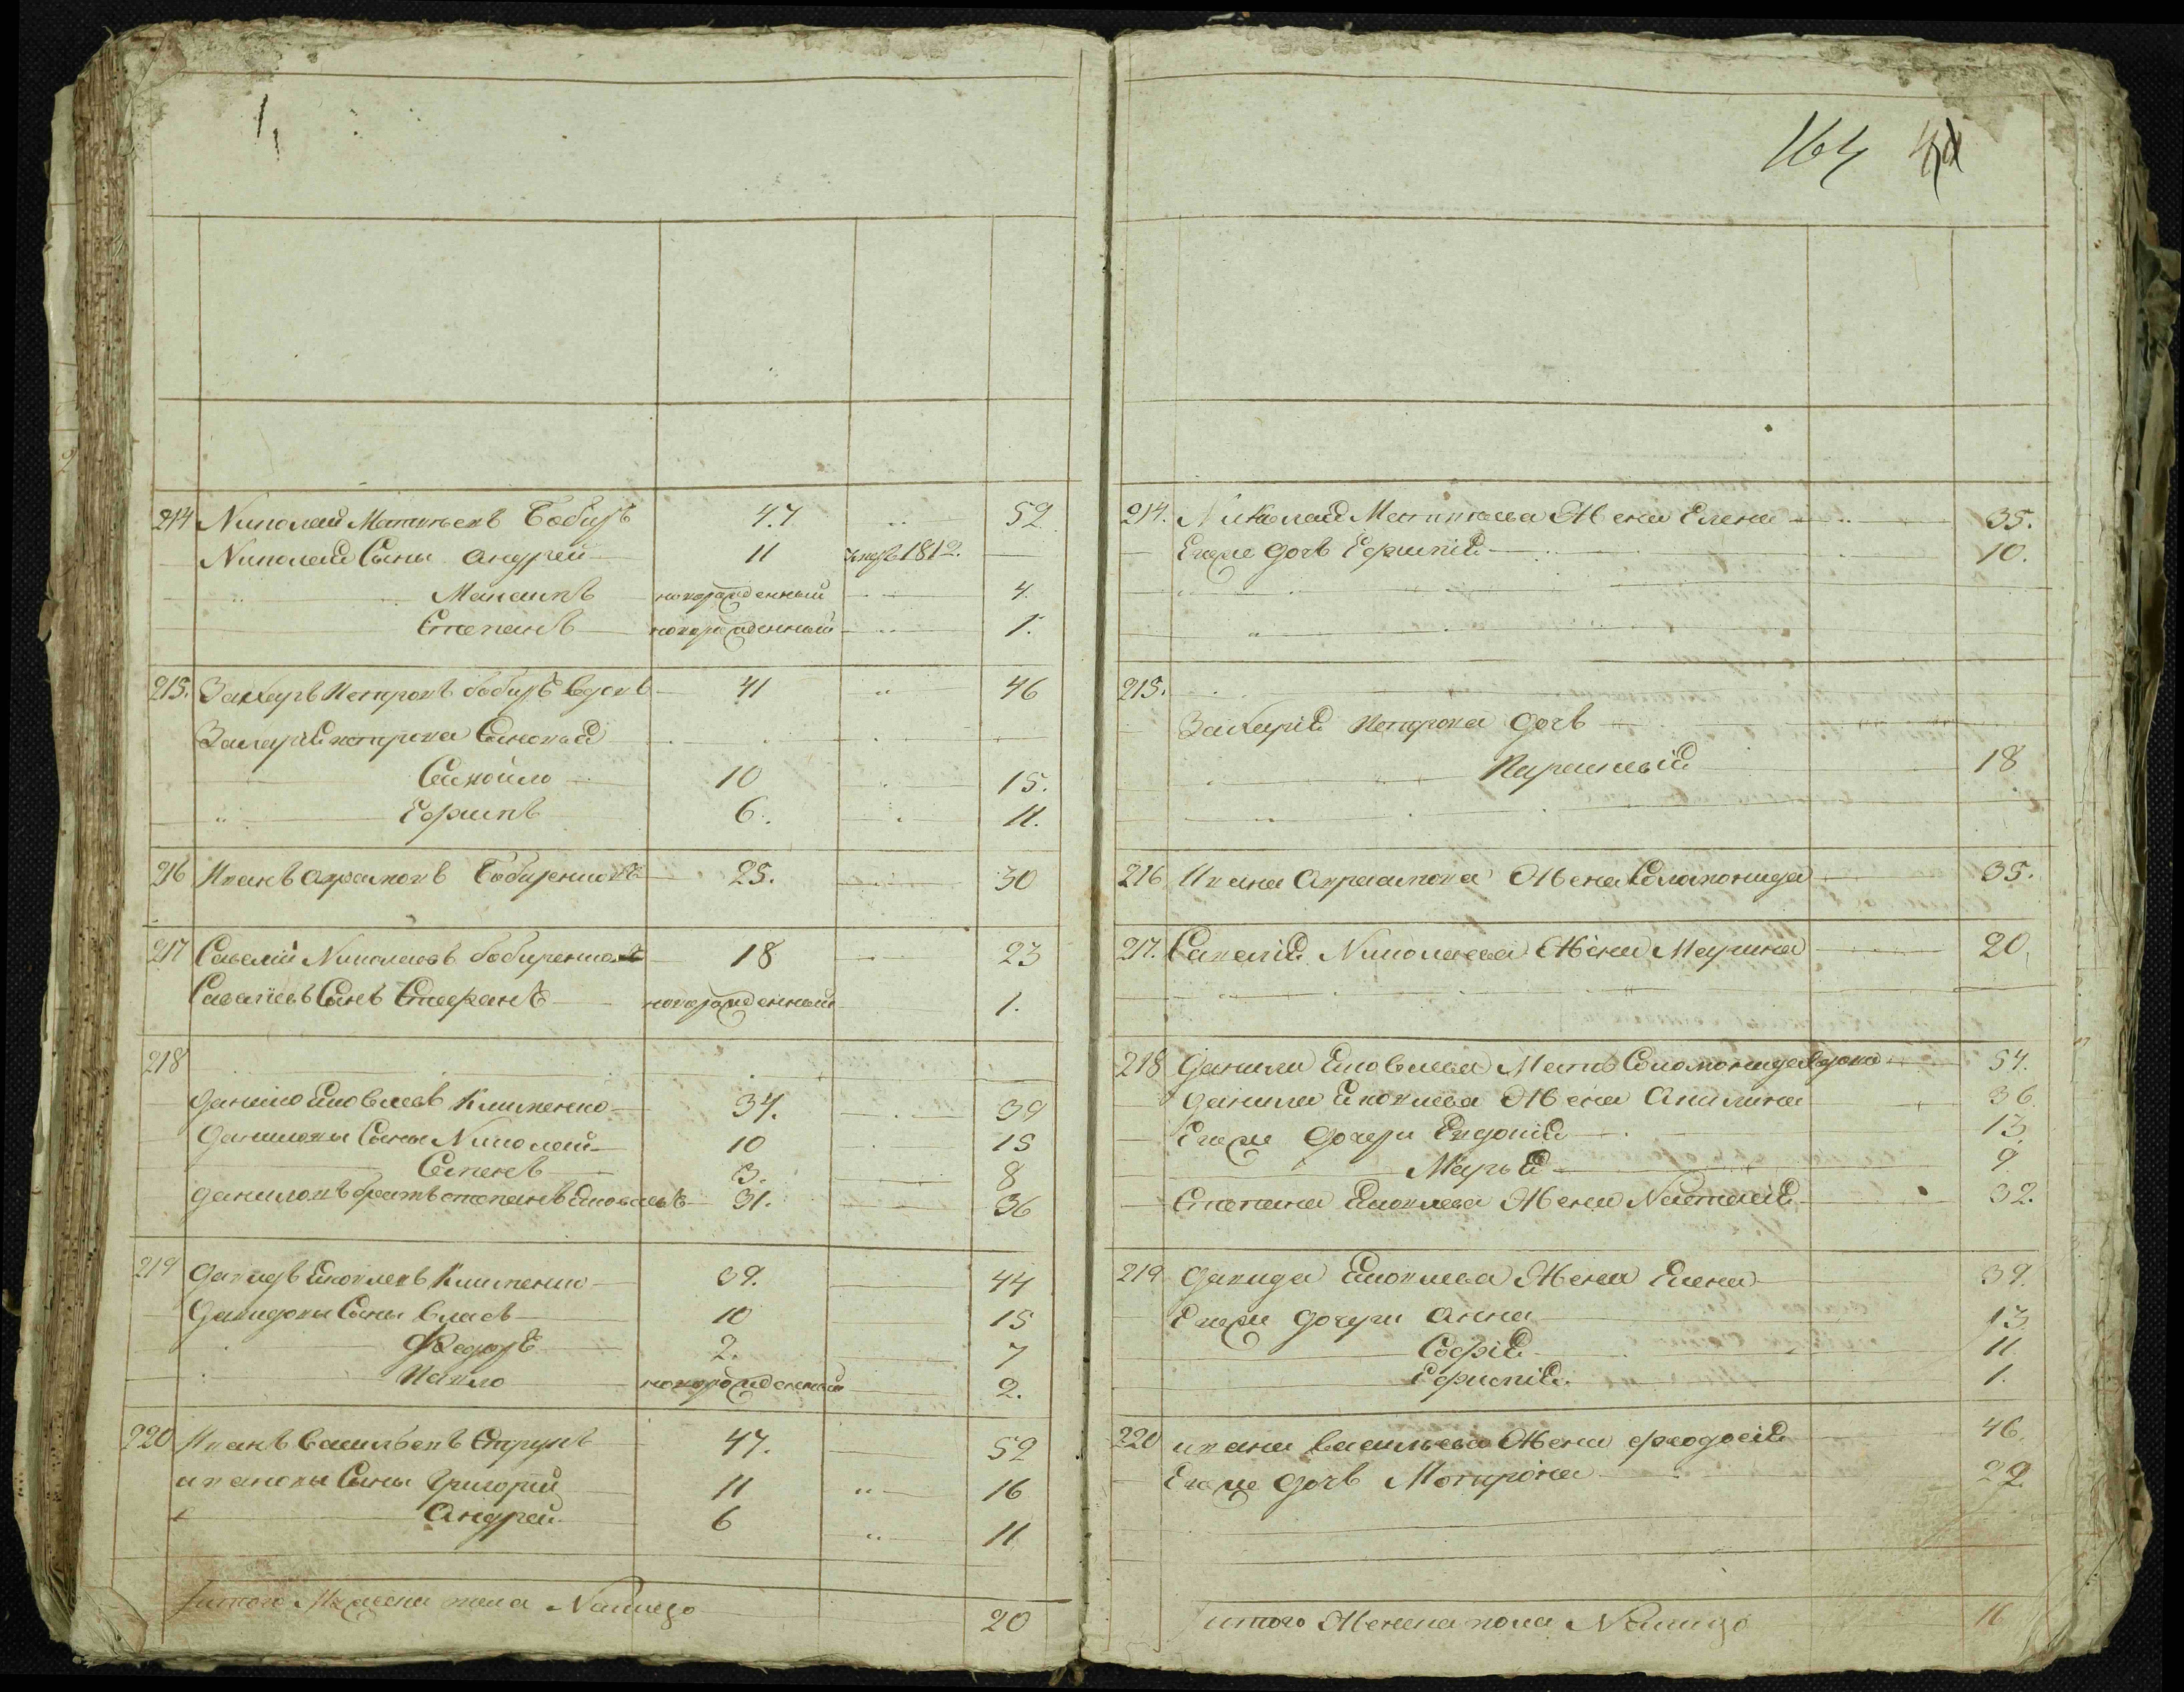 164
214 Николай Матвеевъ Бобиръ 47 52
Николая Сыны андрей 11 умеръ 1812.
Максимъ новорожденный 4.
Степанъ новорожденный 1.
215. Захаръ Петровъ бобиръ вдовъ 41 46
Захарія петрова Сыновья
Самойло 10 15.
Ефимъ 6. 11.
216 Иванъ авраамовъ Бобиренко 25. 30
217 Савелий Николаевъ бобиренко 18 23
Савелиевъ Сынъ Стефанъ новорожденный 1.
218
данило Яковлевъ Клименко 34. 39
даниловы Сыны Николай 10 15
Семенъ 3. 8
даниловъ братъ степанъ Яковлевъ 31. 36
219 давидъ Яковлевъ Клименко 39. 44
давидовы Сыны власъ 10 15
Федоръ 2. 7
Павло новорожденный 2.
220 Иванъ Васильевъ Струкъ 47. 52
ивановы Сыны Григорий 11 16
Андрей 6 11
итого Мужеска пола Налицо 20
214. Николая Матвеева Жена Елена 35.
Егоже дочь Ефимія 10.
215.
Захарія Петрова дочь
Параскевія 18
216 Ивана Авраамова Жена Соломонида 35.
217. Савелія Николаева Жена Марина 20.
218 данила Яковлева Мать Соломонида вдова 54.
данила Яковлева Жена Акилина 36
Егоже дочери Евдокія 13
Марья 9
Степана Яковлева Жена Наталія 32.
219 давида Яковлева Жена Елена 39.
Егоже дочери анна 13
Софія 11
Ефимія 1.
220 ивана васильева Жена феодосія 46.
Егоже дочь Мотрона 22
итого Женска пола Налицо 16